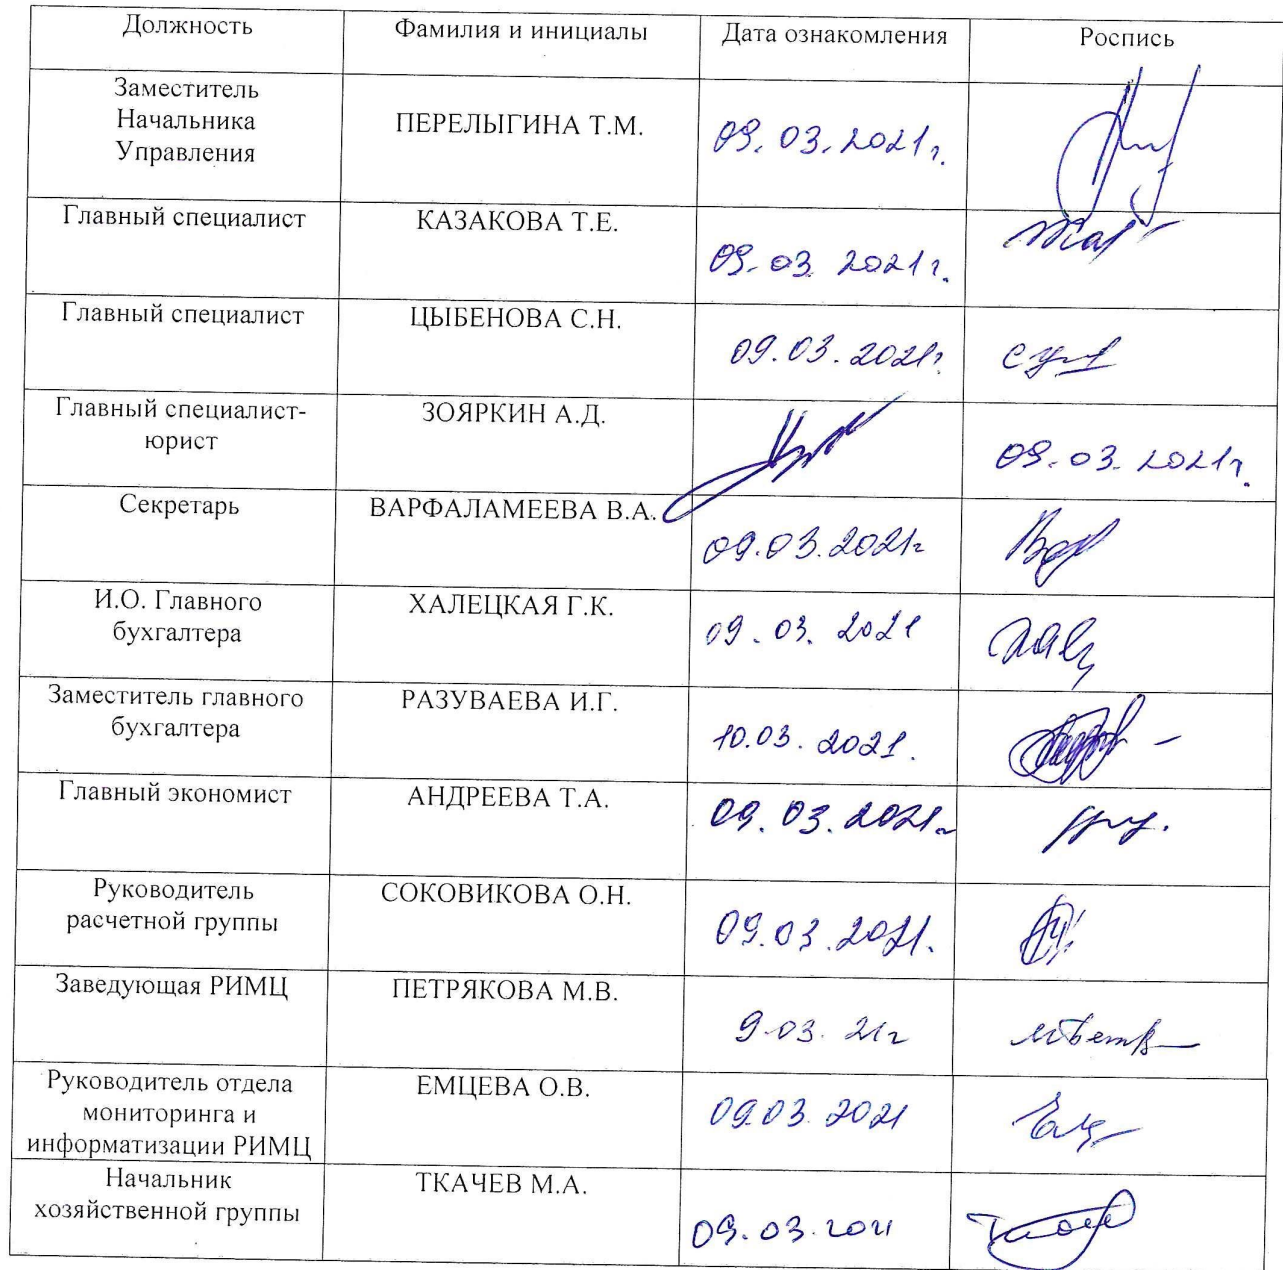 Должность Фамилия и инициалы Дата ознакомления Роспись
Заместитель
Начальника
Управления
ПЕРЕЛЫГИНА Т.М.
09.03.2021г.
Главный специалист КАЗАКОВА Т.Е.
09.03.2021г.
Главный специалист ЦЫБЕНОВА С.Н.
09.03.2021г.
Главный специалист-
юрист
ЗОЯРКИН А.Д.
09.03.2021г.
Секретарь ВАРФАЛАМЕЕВА В.А.
09.03.2021г
И.О. Главного
бухгалтера
ХАЛЕЦКАЯ Г.К.
09.03.2021
Заместитель главного
бухгалтера
РАЗУВАЕВА И.Г.
10.03.2021.
Главный экономист АНДРЕЕВА Т.А.
09.03.2021г
Руководитель
расчетной группы
СОКОВИКОВА О.Н.
09.03.2021.
Заведующая РИМЦ ПЕТРЯКОВА М.В.
9.03.21г
Руководитель отдела
мониторинга и
информатизации РИМЦ
ЕМЦЕВА О.В.
09.03.2021
Начальник
хозяйственной группы
ТКАЧЕВ М.А.
09.03.2021